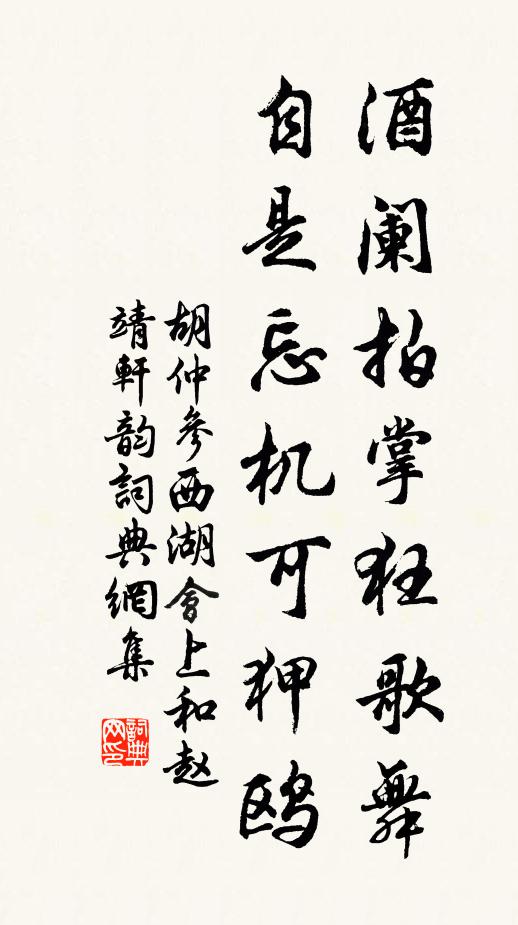 酒阑拍掌狂歌舞
自是忘机可狎鸥
胡仲参西湖會上和赵
靖軒韵詞典網集
詞典
网印